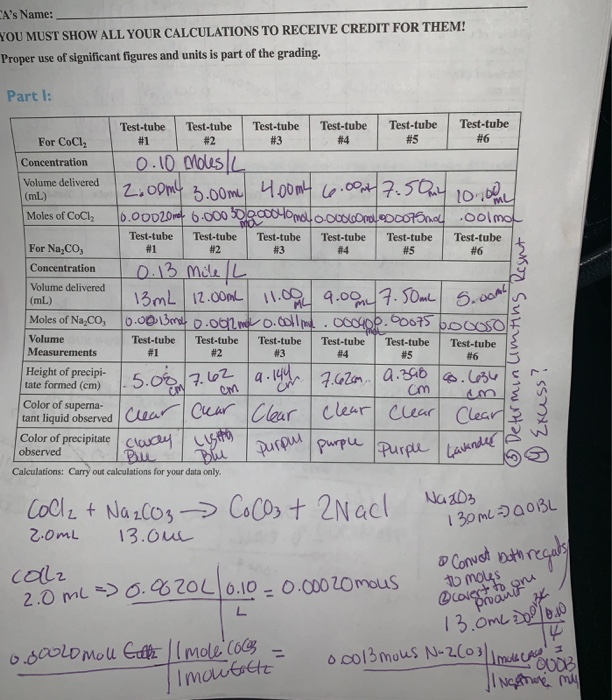 A's Name:
YOU MUST SHOW ALL YOUR CALCULATIONS TO RECEIVE CREDIT FOR THEM!
Proper use of significant figures and units is part of the grading.
Part I:
For CoCl₂ Test-tube #1 Test-tube #2 Test-tube #3 Test-tube #4 Test-tube #5 Test-tube #6
Concentration 0.10 moles/L
Volume delivered (mL) 2.00mL 3.00mL 4.00mL 6.00mL 7.50mL 10.00mL
Moles of CoCl₂ 0.00020mol 0.00030mol 0.00040mol 0.00060mol 0.00075mol .001mol
For Na₂CO₃ Test-tube #1 Test-tube #2 Test-tube #3 Test-tube #4 Test-tube #5 Test-tube #6
Concentration 0.13 mole/L
Volume delivered (mL) 13mL 12.00mL 11.00mL 9.00mL 7.50mL 5.00mL
Moles of Na₂CO₃ 0.0013mol 0.0012mol 0.0011mol .00090 0.00075 0.00050
Volume Measurements Test-tube #1 Test-tube #2 Test-tube #3 Test-tube #4 Test-tube #5 Test-tube #6
Height of precipitate formed (cm) 5.08cm 7.62cm 9.144cm 7.62cm 9.398cm 8.636cm
Color of supernatant liquid observed Clear Clear Clear Clear Clear Clear
Color of precipitate observed cloudy Blue Light Blue purple purple Purple Lavender
③ Determin Limiting
④ Excess?
Calculations: Carry out calculations for your data only.
CoCl₂ + Na₂CO₃ → CoCO₃ + 2NaCl
2.0mL 13.0mL
CoCl₂
2.0 mL => 0.0020L | 0.10 = 0.00020 moles
L
① Convet both
to moles
②
13.0mL
1 mole CoCO₃ =
0.0013 moles